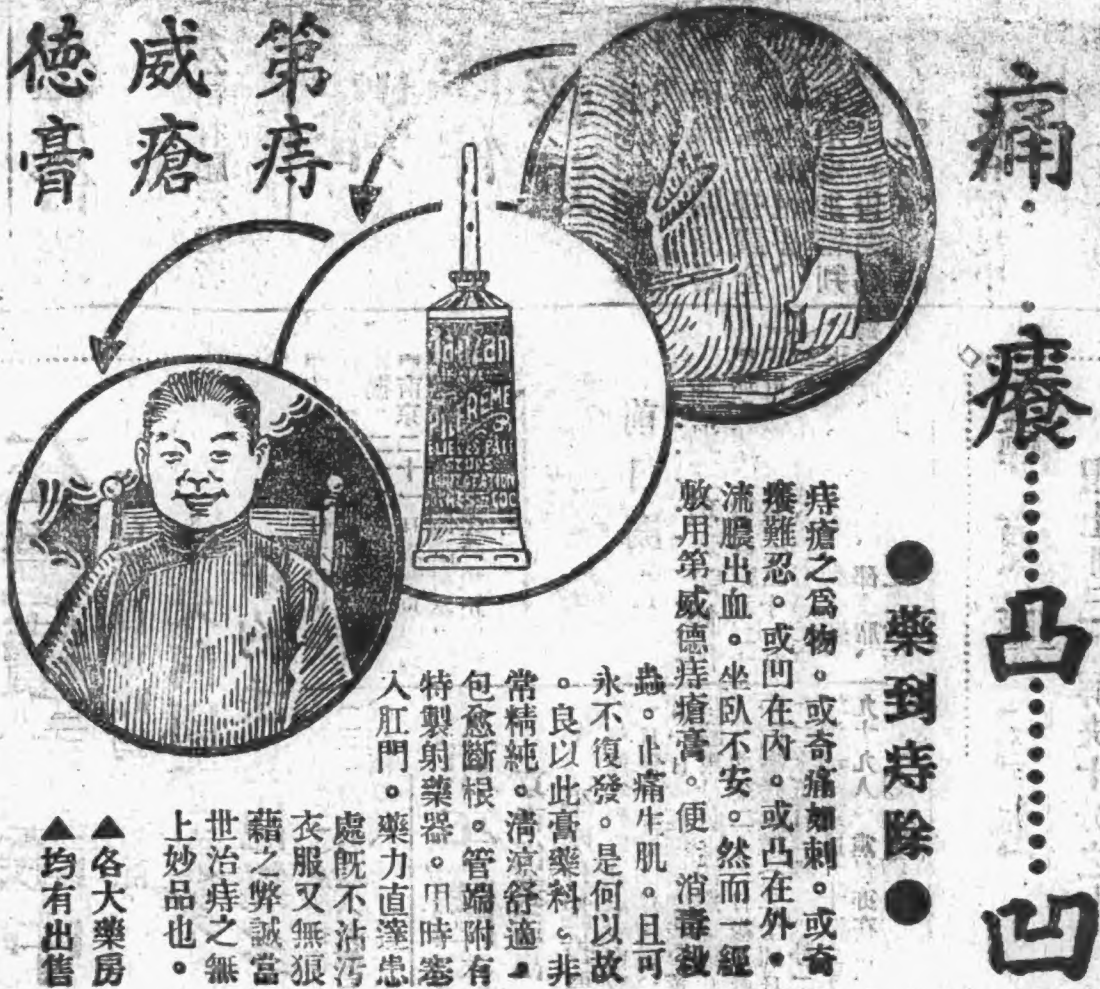 痛癢凸凹
●藥到痔除●
痔瘡之爲物。或奇痛如刺。或奇
癢難忍。或凹在內。或凸在外。
流膿出血。坐臥不安。然而一經
敷用第威德痔瘡膏。便消毒殺
蟲。止痛生肌。且可
永不復發。是何以故
。良以此膏藥料。非
常精純。清涼舒適。
包愈斷根。管端附有
特製射藥器。用時塞
入肛門。藥力直達患
處旣不沾污
衣服又無狼
藉之弊誠當
世治痔之無
上妙品也。
▲各大藥房
▲均有出售
第威德
痔瘡膏
STOPS